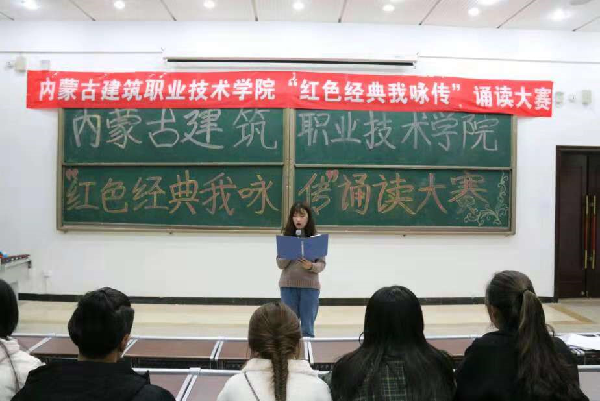 内蒙古建筑职业技术学院“红色经典我咏传”诵读大赛
内蒙古建筑 职业技术学院
“红色经典我咏 传”诵读大赛